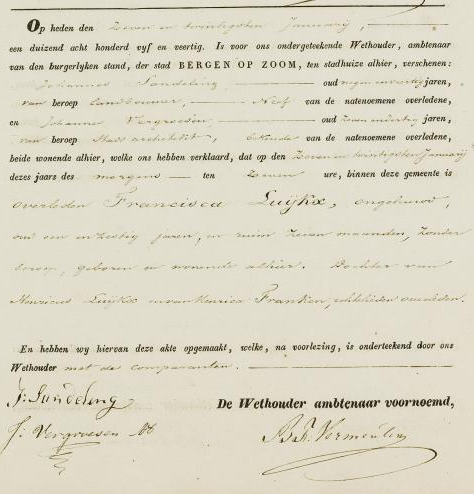 Op heden den Zeven en twintigsten Januarij,
een duizend acht honderd vyf en veertig. Is voor ons ondergeteekende Wethouder, ambtenaar
van den burgerlyken stand, der stad BERGEN OP ZOOM, ten stadhuize alhier, verschenen:
Johannes Sundeling oud negenenveertig jaren,
van beroep Landbouwer, Neef van de natenoemene overledene,
en Johannes Vergroesen oud zevenendertig jaren,
van beroep Stads architekt, bekende van de natenoemene overledene,
beide wonende alhier, welke ons hebben verklaard, dat op den Zeven en twintigsten Januarij
dezes jaars des morgens ten zeven ure, binnen deze gemeente is
overleden Francisca Luijkx, ongehuwd,
oud een en zestig jaren, en ruim zeven maanden, zonder
beroep, geboren en wonende alhier. Dochter van
Henricus Luijkx en van Henrica Franken, echtelieden overleden.
En hebben wy hiervan deze akte opgemaakt, welke, na voorlezing, is onderteekend door ons
Wethouder met de comparanten.
J: Sundeling
De Wethouder ambtenaar voornoemd,
J: Vergroesen
Vermeulen